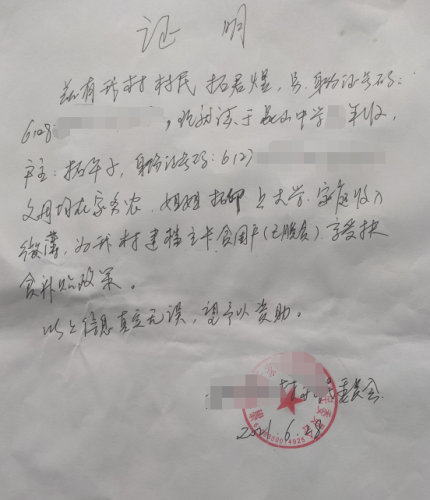 证明
兹有我村村民 拓君煜,男,身份证号码:
6108 ,现就读于昆山中学 年级,
户主:拓年子,身份证号码:6127
父母均在家务农,姐姐 拓 上大学,家庭收入
微薄,为我村建档立卡贫困户(已脱贫)享受扶
贫补贴政策。
以上信息真实无误,望予以资助。
村民委员会
6.